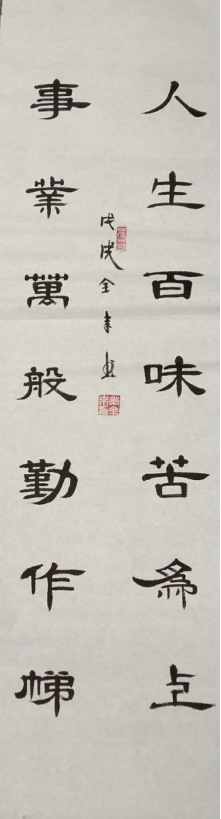 人生百味苦為上
事業萬般勤作梯
戊戌全